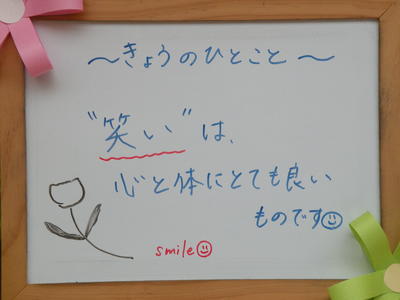 ～きょうのひとこと～
"笑い"は、
心と体にとても良い
ものです☺
smile☺